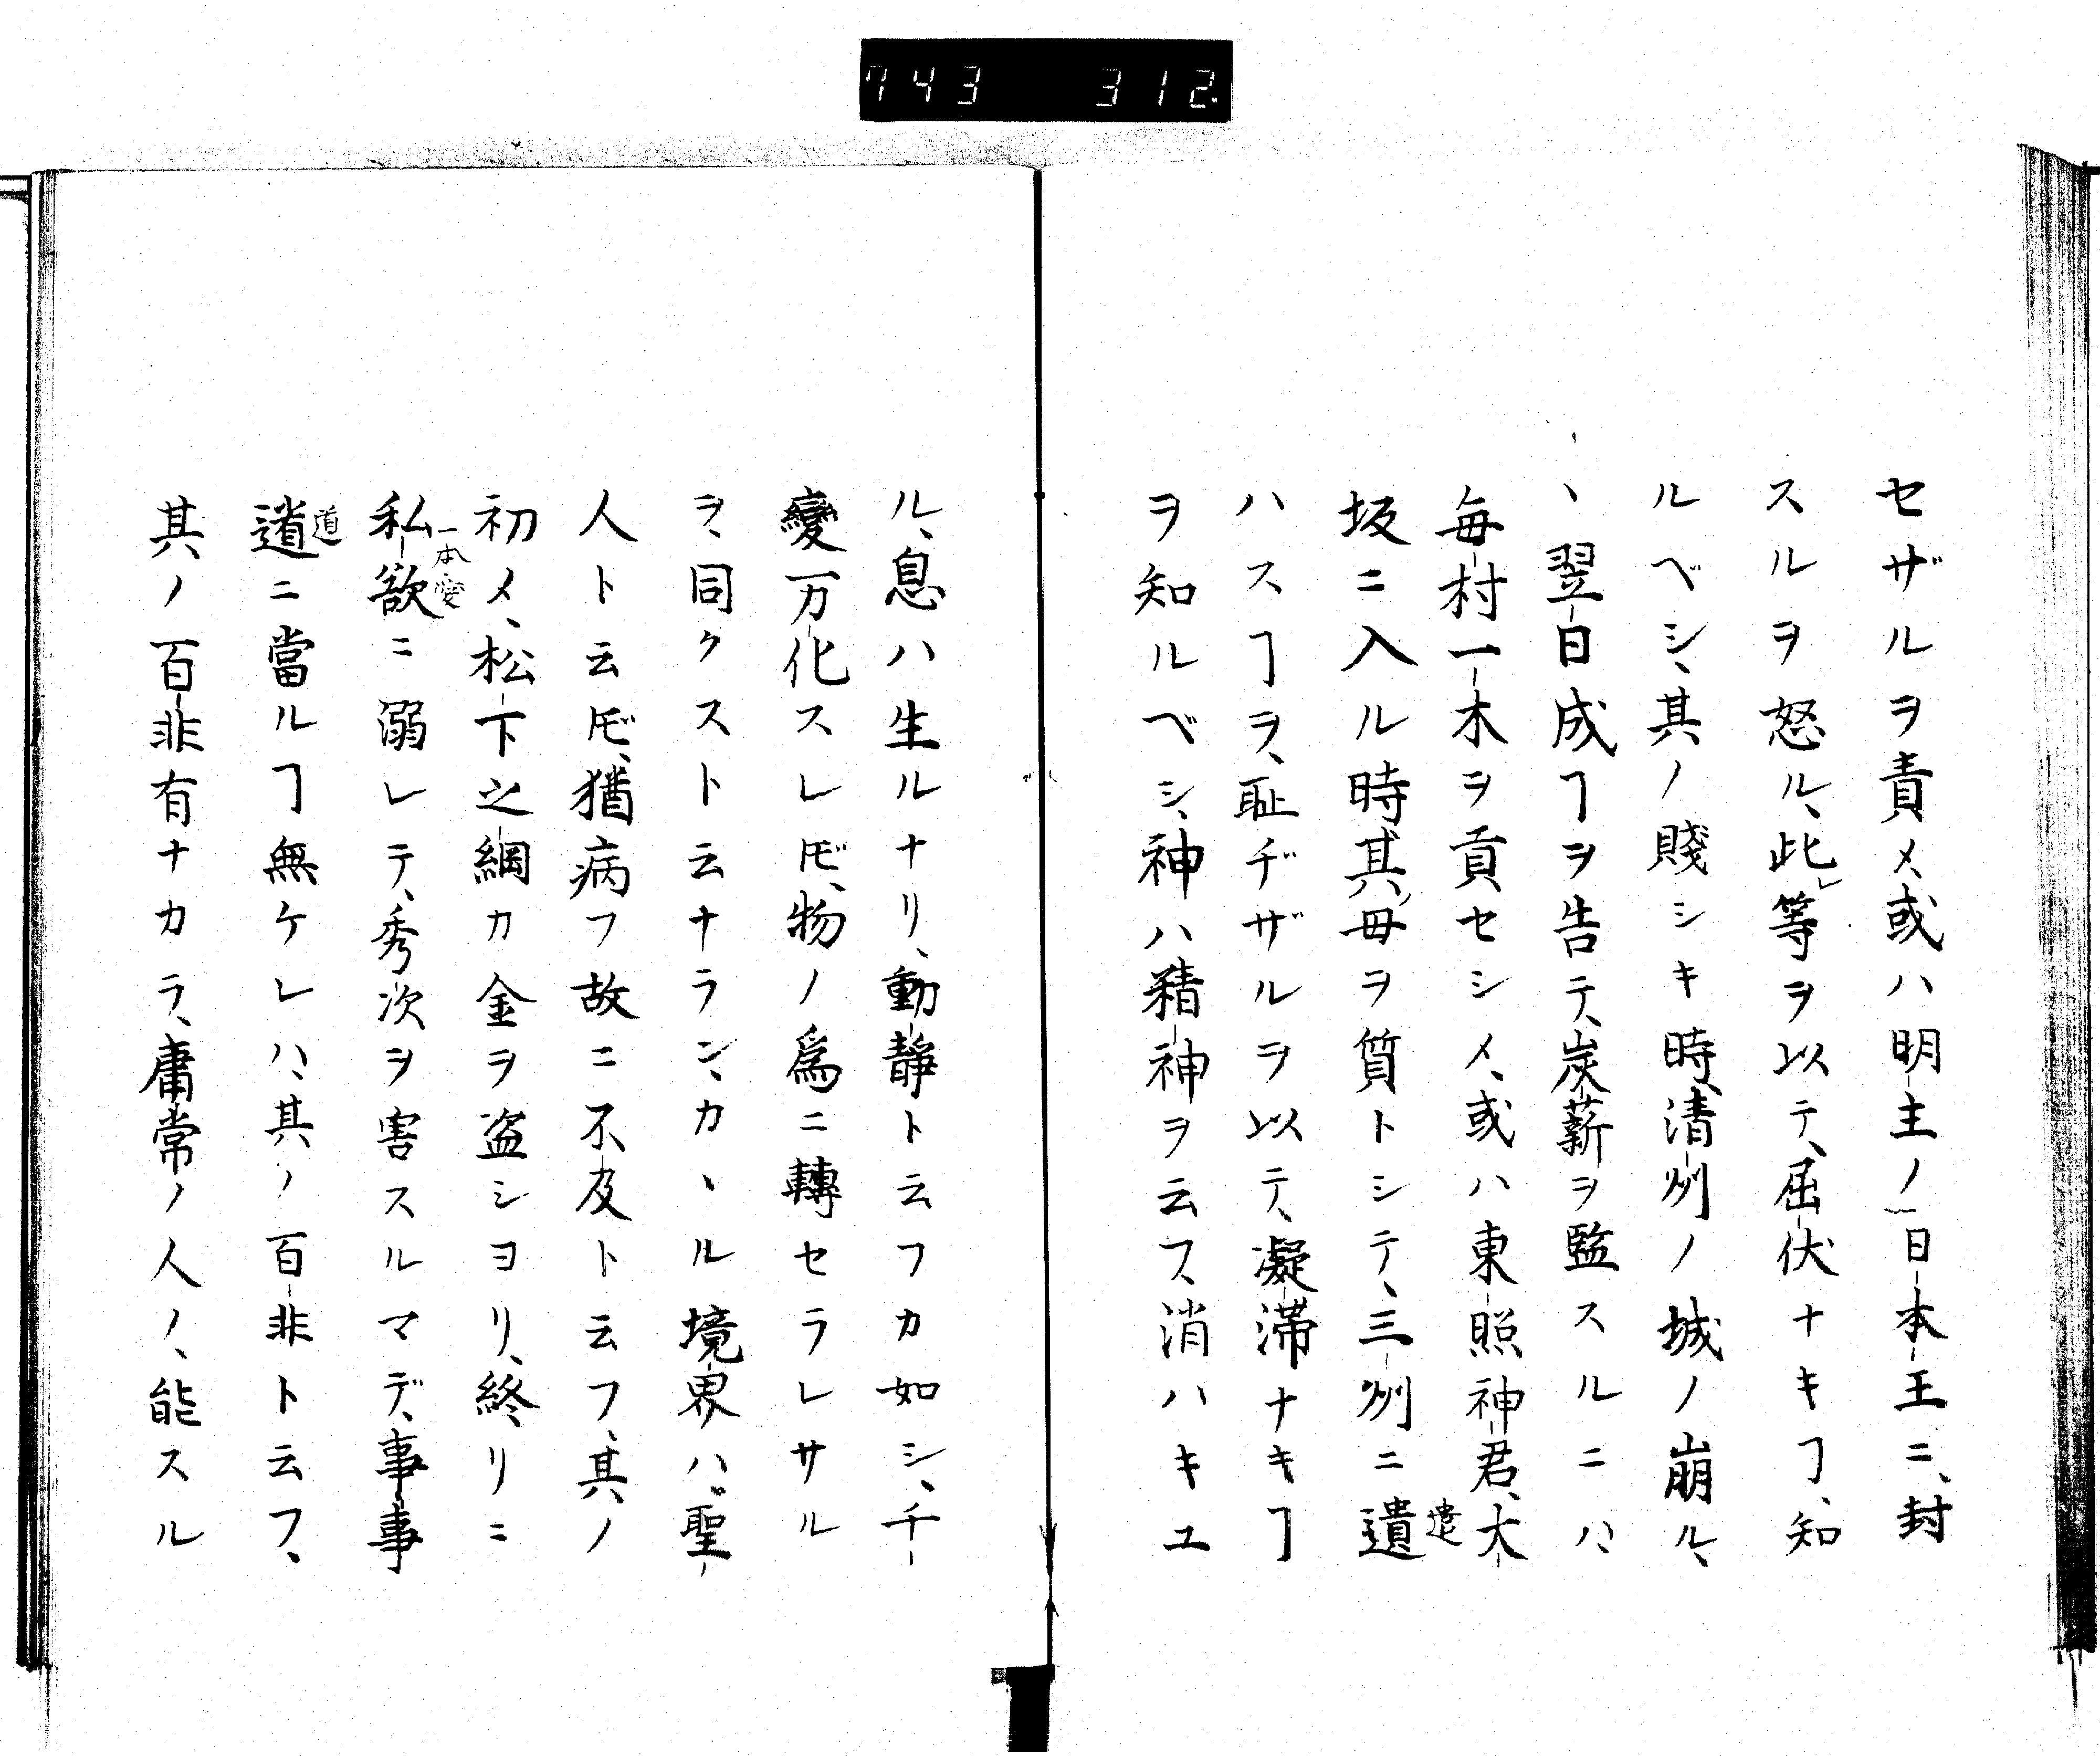 743 312
セザルヲ責メ、或ハ明主ノ日本王ニ、封
スルヲ怒ル、此等ヲ以テ、屈伏ナキヿ、知
ルベシ、其ノ賤シキ時、清州ノ城ノ崩ル、
、翌日成ヿヲ告テ、炭薪ヲ監スルニハ、
毎村一木ヲ貢セシメ、或ハ東照神君、大
坂ニ入ル時其ノ母ヲ質トシテ、三州ニ遺
遣
ハスヿヲ、耻ヂザルヲ以テ、凝滞ナキヿ
ヲ知ルベシ、神ハ精神ヲ云フ、消ハキユ
ル、息ハ生ルナリ、動静ト云フカ如シ、千
變万化スレ𪜈、物ノ爲ニ轉セラレサル
ヲ、同クスト云ナラン、カヽル境界ハ、聖
人ト云𪜈、猶病フ故ニ不及ト云フ、其ノ
初メ、松下之綱カ金ヲ盗シヨリ、終リニ
一本愛
私欲ニ溺レテ、秀次ヲ害スルマデ、事事
道
遒ニ當ルヿ無ケレハ、其ノ百非ト云フ、
其ノ百非有ナカラ、庸常ノ人ノ、能スル